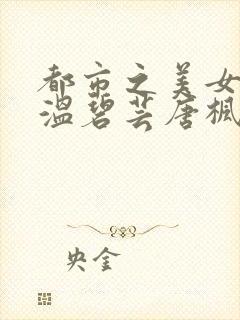 都市之美女
温碧芸唐枫
央金